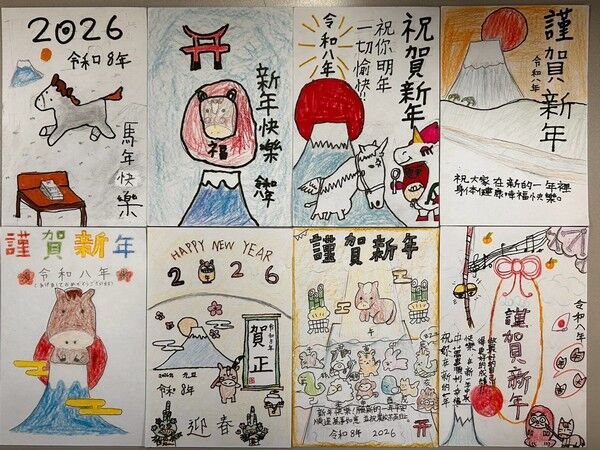 2026
令和8年
馬年快樂
新年快樂
福
令和八年
祝你明年
一切愉快!!
祝賀新年
謹賀新年
令和八年
祝大家在新的一年裡
身体健康時福快樂。
謹賀新年
令和八年
HAPPY NEW YEAR
2026
賀正
2026年 元旦
令和8年
迎春
謹賀新年
午
令和8年 2026
謹賀新年
令和八年
祝你在新的一年